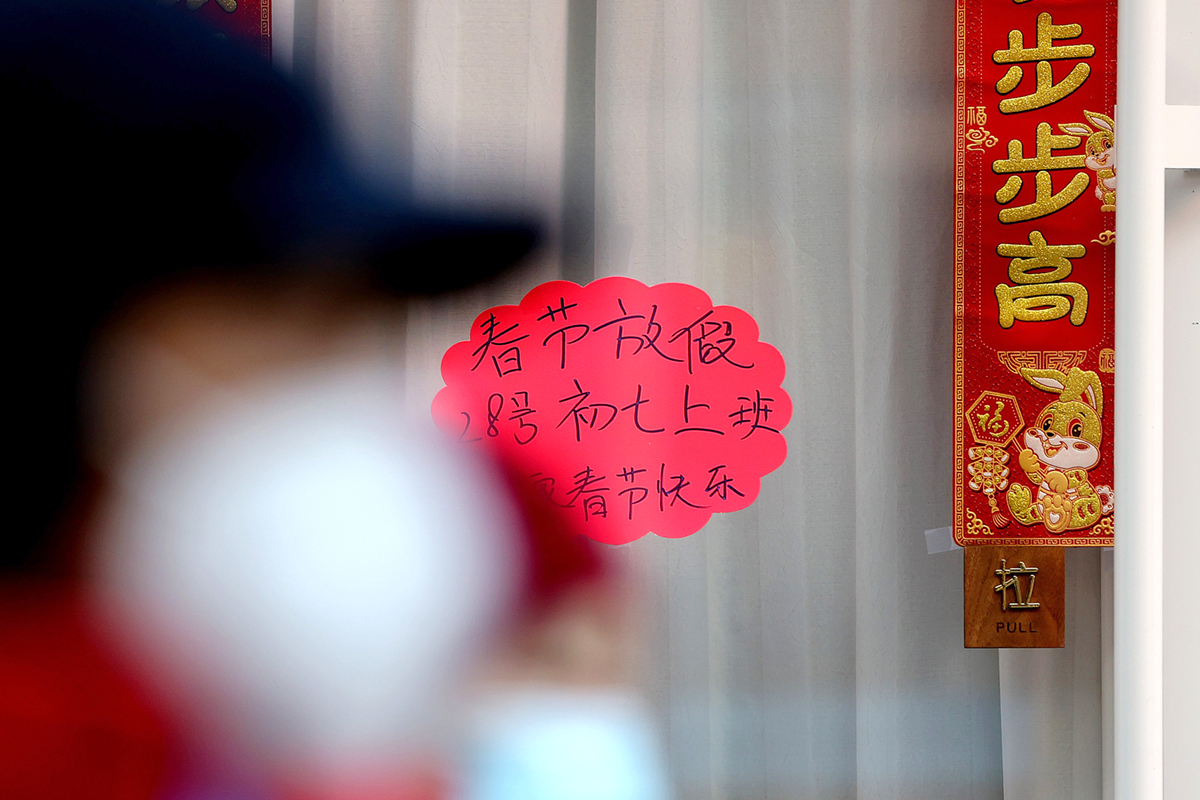 春节放假
28号 初七上班
春节快乐
步步高
福
福
拉
PULL